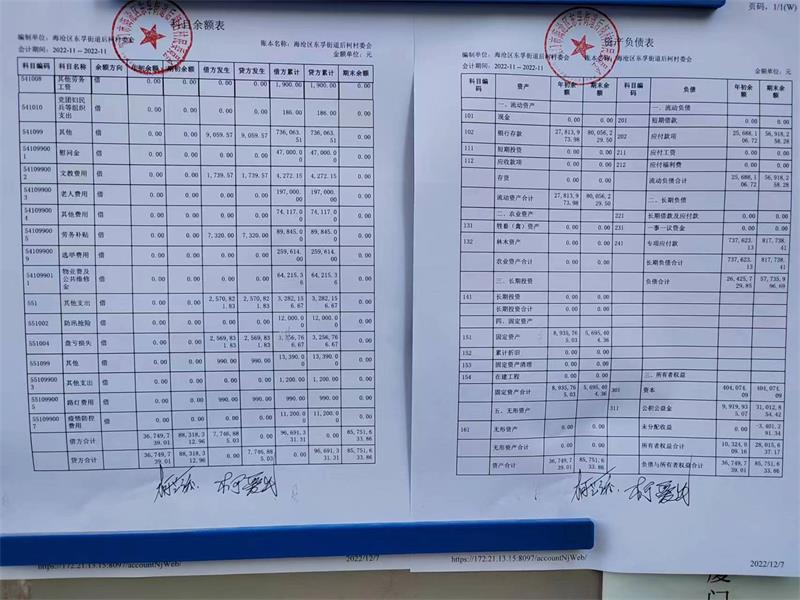 科目余额表
编制单位：海沧区东孚街道后柯村委会
账本名称：海沧区东孚街道后柯村委会
会计期间：2022-11--2022-11
金额单位：元
科目编码 科目名称 余额方向 年初余额 期初余额 借方发生 贷方发生 借方累计 贷方累计 期末余额
541008 其他劳务工资 借 0.00 0.00 0.00 0.00 1,900.00 1,900.00 0.00
541010 党团妇民兵等组织支出 借 0.00 0.00 0.00 0.00 186.00 186.00 0.00
541099 其他 借 0.00 0.00 9,059.57 9,059.57 736,063.51 736,063.51 0.00
541099001 慰问金 借 0.00 0.00 0.00 0.00 47,000.00 47,000.00 0.00
541099002 文教费用 借 0.00 0.00 1,739.57 1,739.57 4,272.15 4,272.15 0.00
541099003 老人费用 借 0.00 0.00 0.00 0.00 197,000.00 197,000.00 0.00
541099004 其他费用 借 0.00 0.00 0.00 0.00 74,117.00 74,117.00 0.00
541099005 劳务补贴 借 0.00 0.00 7,320.00 7,320.00 89,845.00 89,845.00 0.00
541099009 选举费用 借 0.00 0.00 0.00 0.00 259,614.00 259,614.00 0.00
541099011 物业费及公共维修金 借 0.00 0.00 0.00 0.00 64,215.36 64,215.36 0.00
551 其他支出 借 0.00 0.00 2,570,821.83 2,570,821.83 3,282,156.67 3,282,156.67 0.00
551002 防汛抢险 借 0.00 0.00 0.00 0.00 12,000.00 12,000.00 0.00
551004 盘亏损失 借 0.00 0.00 2,569,831.83 2,569,831.83 3,256,766.67 3,256,766.67 0.00
551099 其他 借 0.00 0.00 990.00 990.00 13,390.00 13,390.00 0.00
551099003 其他支出 借 0.00 0.00 0.00 0.00 1,200.00 1,200.00 0.00
551099005 路灯费用 借 0.00 0.00 990.00 990.00 990.00 990.00 0.00
551099007 疫情防控费用 借 0.00 0.00 0.00 0.00 11,200.00 11,200.00 0.00
借方合计 36,749,739.01 88,318,312.96 7,746,885.03 0.00 96,691,331.31 0.00 85,751,633.86
贷方合计 36,749,739.01 88,318,312.96 0.00 7,746,885.03 0.00 96,691,331.31 85,751,633.86
https://172.21.13.15:8097/accountNjWeb/
2022/12/7
页码，1/1(W)
资产负债表
编制单位：海沧区东孚街道后柯村委会
账本名称：海沧区东孚街道后柯村委会
会计期间：2022-11--2022-11
金额单位：元
科目编码 资产 年初余额 期末余额 科目编码 负债 年初余额 期末余额
一、流动资产 一、流动负债
101 现金 0.00 0.00 201 短期借款 0.00 0.00
102 银行存款 27,813,973.98 80,056,229.50 202 应付款项 25,688,106.72 56,918,258.28
111 短期投资 0.00 0.00 211 应付工资 0.00 0.00
112 应收款项 0.00 0.00 212 应付福利费 0.00 0.00
存货 0.00 0.00 流动负债合计 25,688,106.72 56,918,258.28
流动资产合计 27,813,973.98 80,056,229.50 二、长期负债
二、农业资产 221 长期借款及应付款 0.00 0.00
131 牲畜（禽）资产 0.00 0.00 231 一事一议资金 0.00 0.00
132 林木资产 0.00 0.00 241 专项应付款 737,623.13 817,738.41
农业资产合计 0.00 0.00 长期负债合计 737,623.13 817,738.41
三、长期投资 负债合计 26,425,729.85 57,735,996.69
141 长期投资 0.00 0.00
长期投资合计 0.00 0.00
四、固定资产
151 固定资产 8,935,765.03 5,695,404.36
152 累计折旧 0.00 0.00
153 固定资产清理 0.00 0.00
154 在建工程 0.00 0.00 三、所有者权益
固定资产合计 8,935,765.03 5,695,404.36 301 资本 404,074.09 404,074.09
五、无形资产 311 公积公益金 9,919,935.07 31,012,854.42
161 无形资产 0.00 0.00 未分配收益 0.00 -3,401,291.34
无形资产合计 0.00 0.00 所有者权益合计 10,324,009.16 28,015,637.17
资产合计 36,749,739.01 85,751,633.86 负债与所有者权益合计 36,749,739.01 85,751,633.86
https://172.21.13.15:8097/accountNjWeb/
2022/12/7
厦门